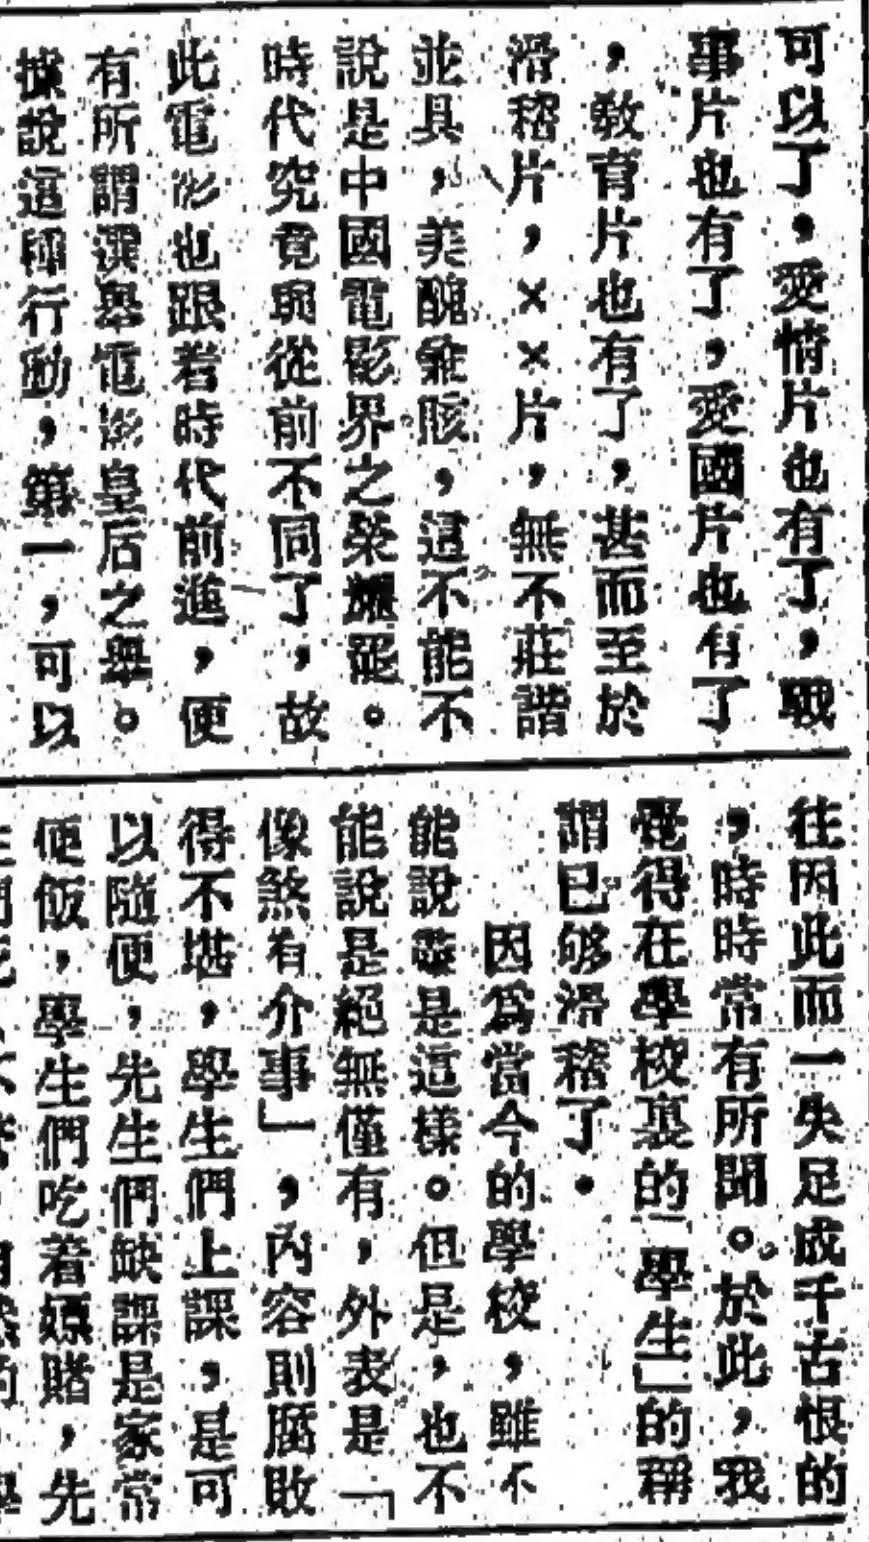 可以了，愛情片也有了，戰
事片也有了，愛國片也有了
，敎育片也有了，甚而至於
滑稽片，××片，無不莊諧
並具，美醜兼賅，這不能不
說是中國電影界之榮耀罷。
時代究竟與從前不同了，故
此電影也跟着時代前進，便
有所謂選舉電影皇后之舉。
據說這種行動，第一，可以
往因此而一失足成千古恨的
，時時常有所聞。於此，我
覺得在學校裏的「學生」的稱
謂已够滑稽了。
因爲當今的學校，雖不
能說都是這樣。但是，也不
能說是絕無僅有，外表是「
像煞有介事」，內容則腐敗
得不堪，學生們上課，是可
以隨便，先生們缺課是家常
便飯，學生們吃着嫖賭，先